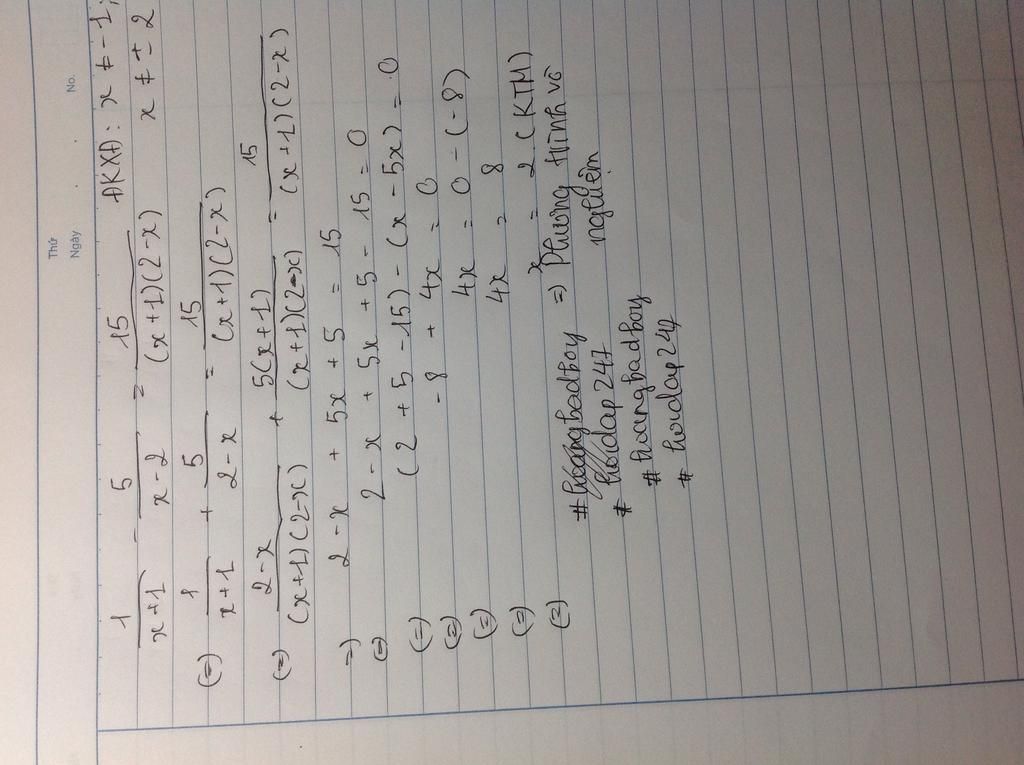 Thứ
Ngày . . No.
1/(x+1) - 5/(x-2) = 15/((x+1)(2-x)) ĐKXĐ: x ≠ -1;
x ≠ ± 2
(=) 1/(x+1) + 5/(2-x) = 15/((x+1)(2-x))
(=) (2-x)/((x+1)(2-x)) + 5(x+1)/((x+1)(2-x)) = 15/((x+1)(2-x))
=) 2-x + 5x + 5 = 15
(=) 2-x + 5x + 5 - 15 = 0
(=) (2 + 5 - 15) - (x - 5x) = 0
(=) -8 + 4x = 0
(=) 4x = 0 - (-8)
(=) 4x = 8
(=) x = 2 (KTM)
=) Phương trình vô
nghiệm
#hoangbadboy
# hoidap247
#hoangbadboy
# hoidap247